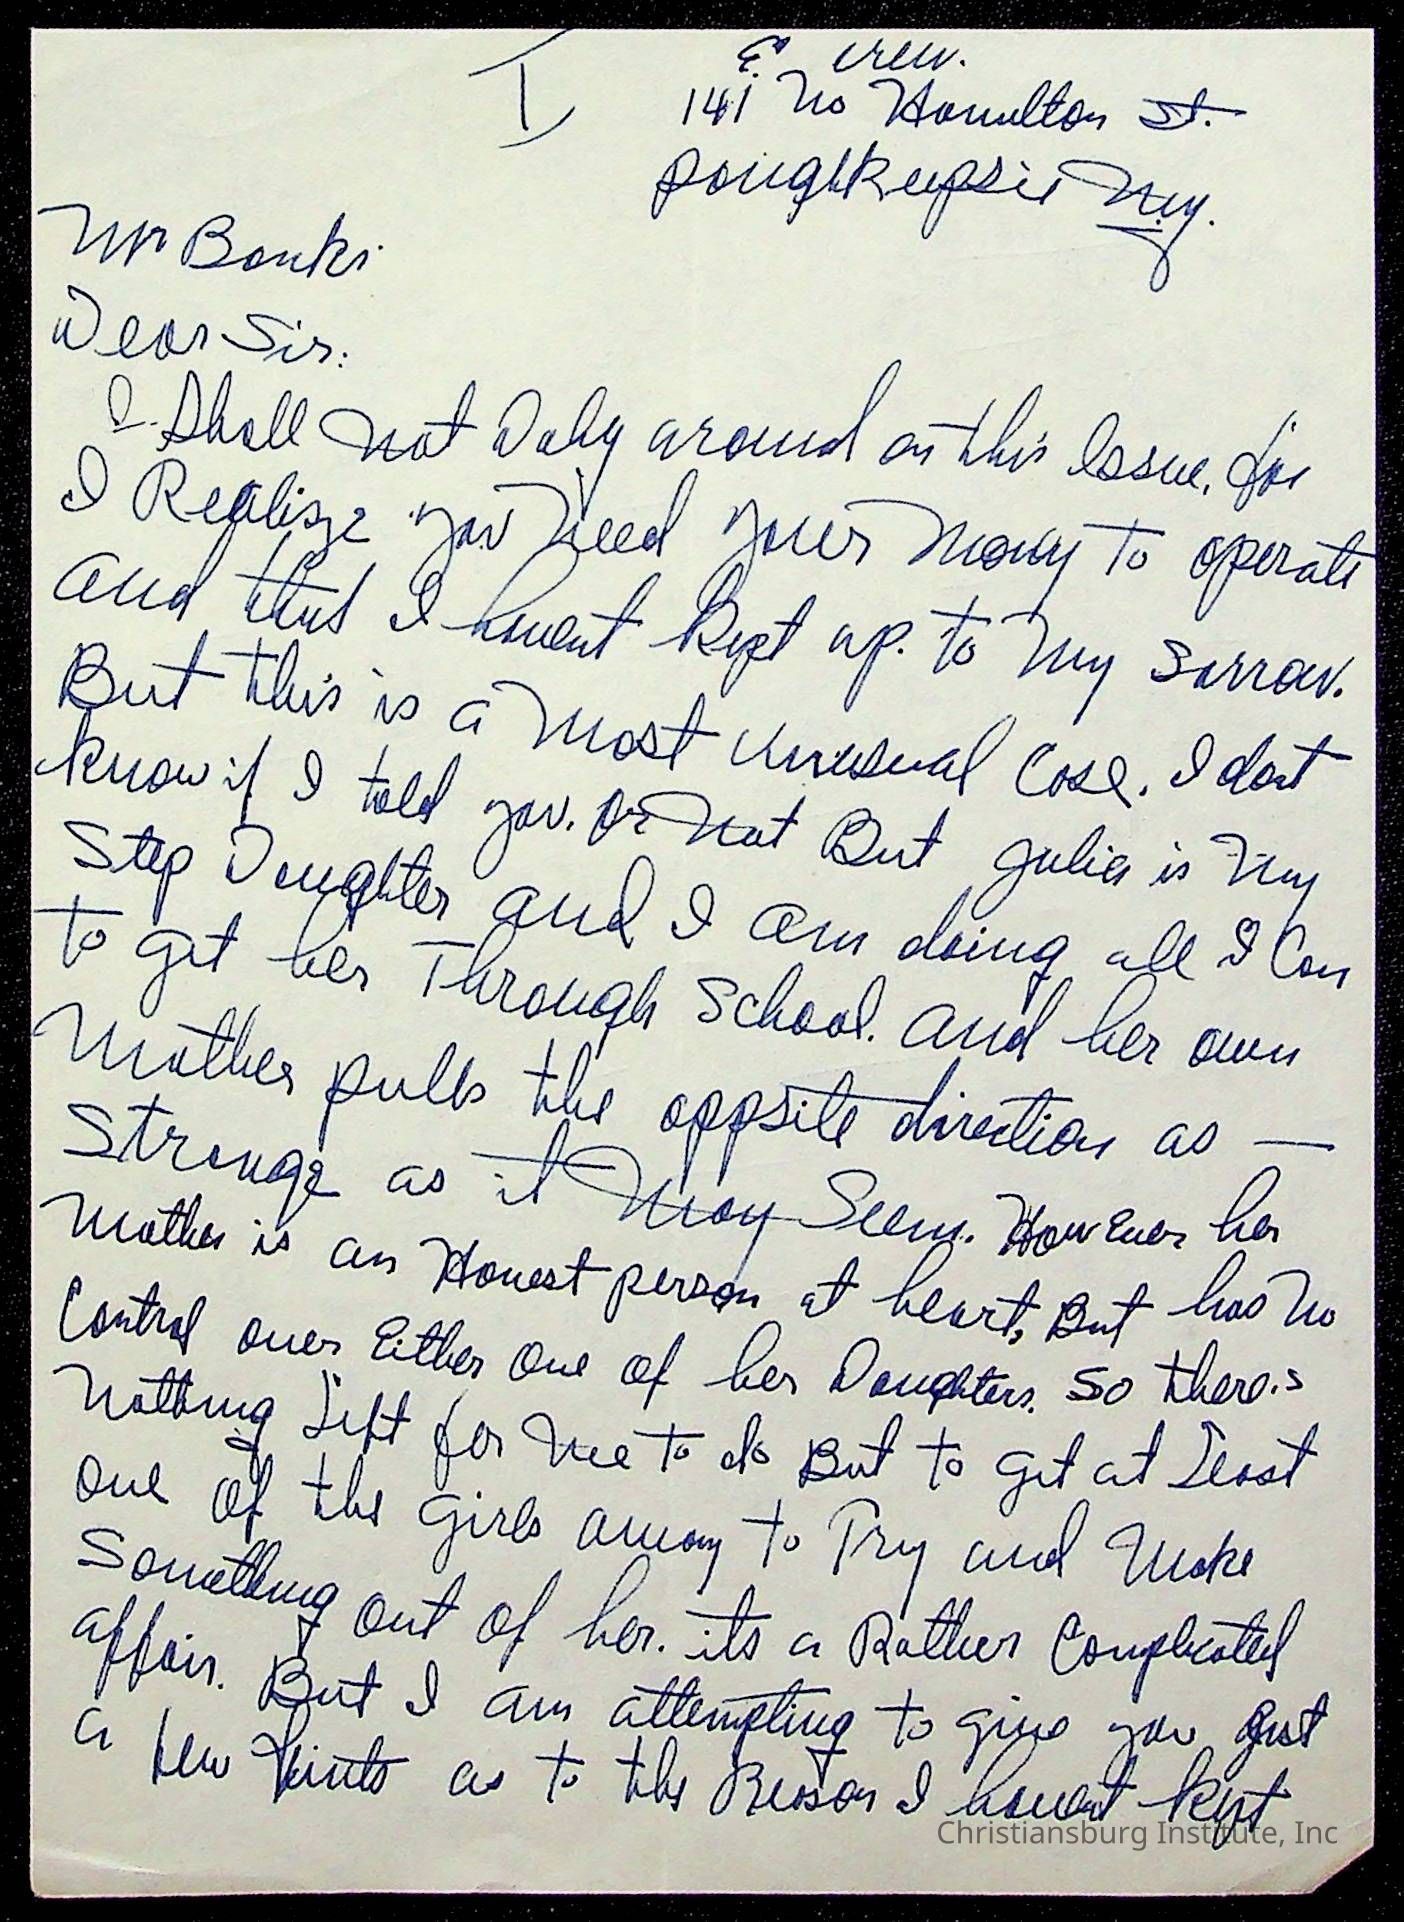 I
E. Crew.
141 No Hamilton St.
Poughkeepsie N.Y.
Mr Banks
Dear Sir:
I Shall Not Daly around on this Issue, for
I Realize you Need your Money To operate
and that I havent Kept up. to My Sorrow.
But this is a Most Unusual Case. I dont
Know if I told you. Or Not But Julia is My
Step Daughter and I am doing all I Can
To get her Through School. And her own
Mother pulls the oppsite direction as —
Strange as it May Seem. However her
Mother is an Honest person at heart, But has No
Control over Either One of her Daughters. So there's
Nothing Left for Me To do But to Get at Least
One of the Girls away to Try and Make
Something Out of her. its a Rather Complicated
affair. But I am attempting to give you Just
a few Hints as to the Reason I havent Kept
Christiansburg Institute, Inc